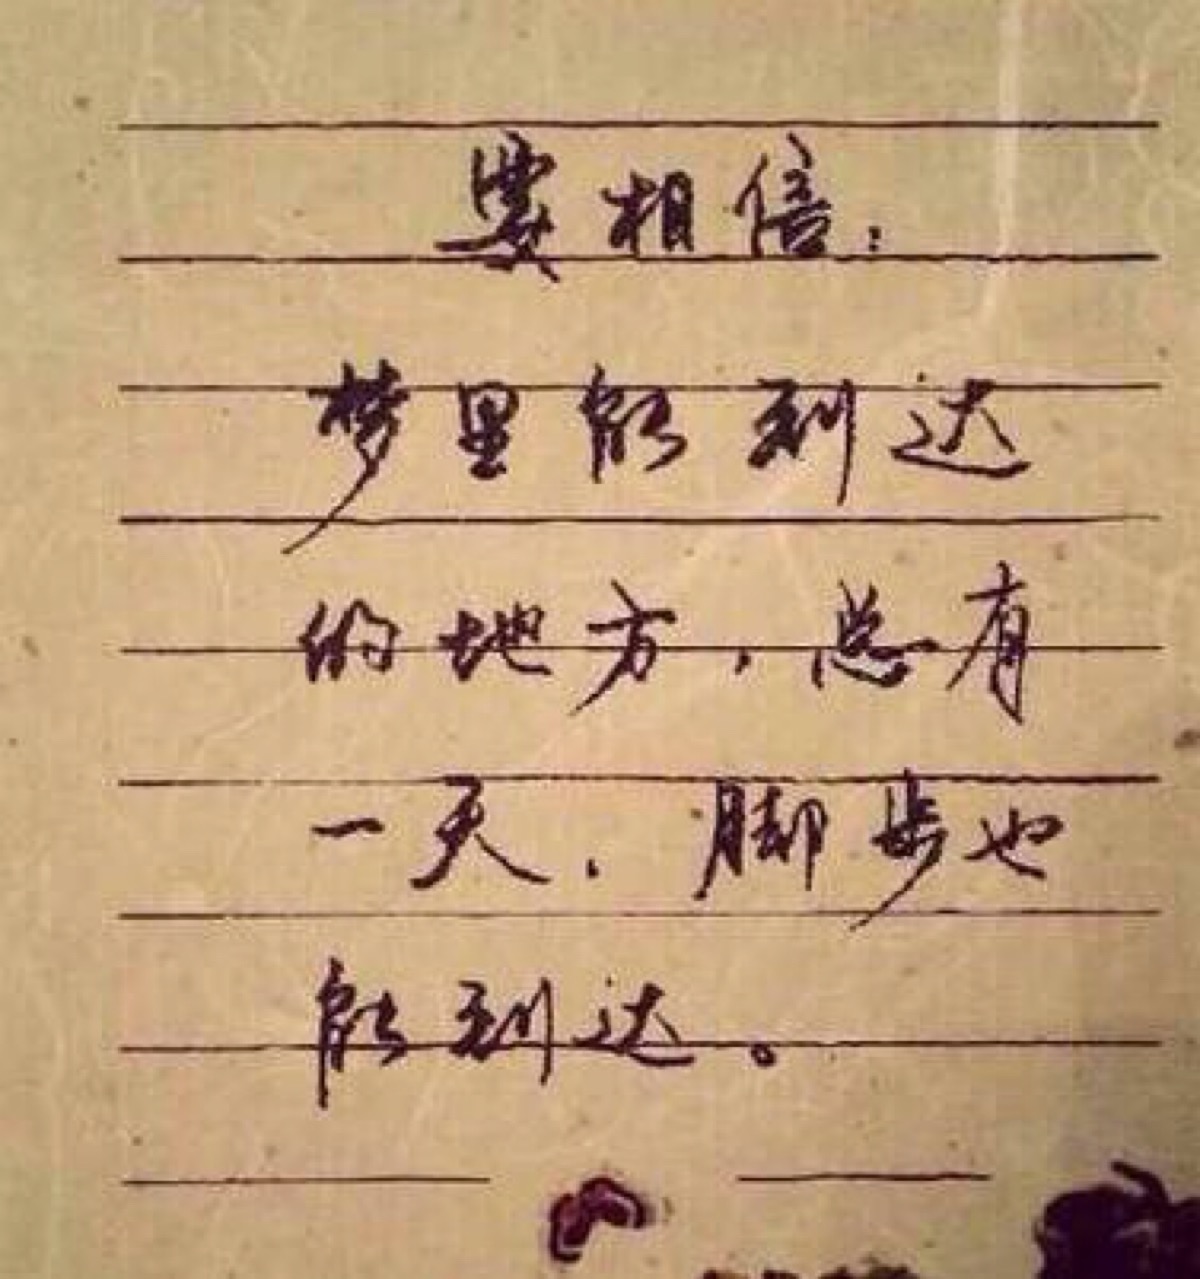 要相信:
梦里能到达
的地方，总有
一天，脚步也
能到达。